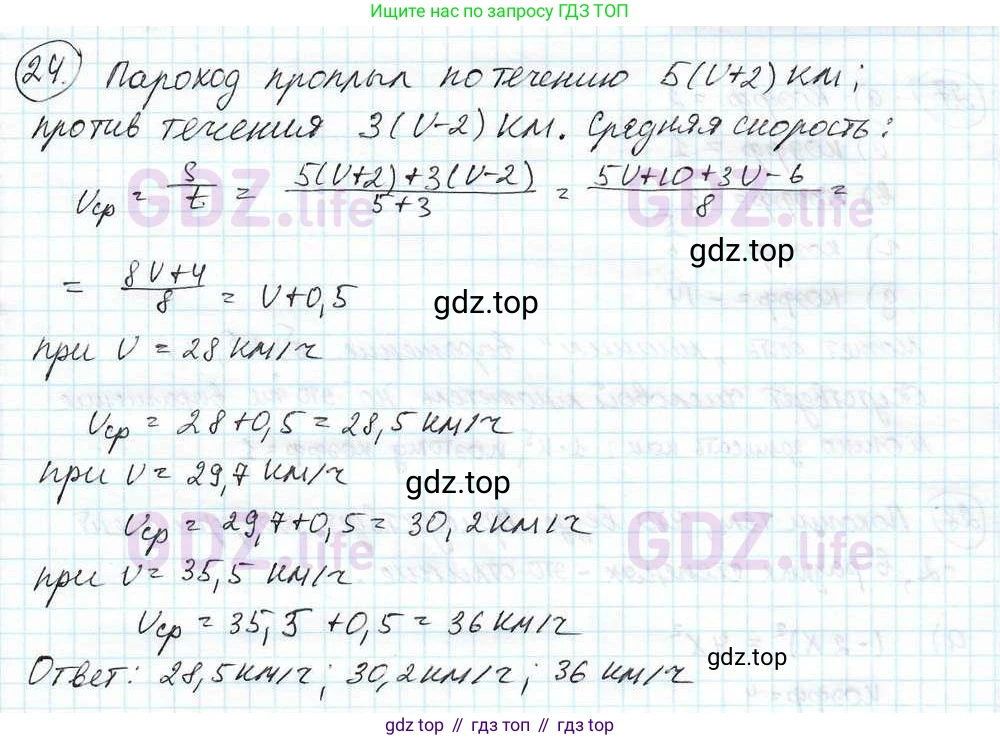 Ищите по запросу ГДЗ ТОП
24. Пароход проплыл по течению 5(V+2) км;
против течения 3(V-2) км. Средняя скорость:
Vср = S/t = (5(V+2)+3(V-2))/(5+3) = (5V+10+3V-6)/8 =
= (8V+4)/8 = V+0,5
при V = 28 км/ч
Vср = 28+0,5 = 28,5 км/ч
при V = 29,7 км/ч
Vср = 29,7+0,5 = 30,2 км/ч
при V = 35,5 км/ч
Vср = 35,5 +0,5 = 36 км/ч
Ответ: 28,5 км/ч; 30,2 км/ч; 36 км/ч
GDZ.life
GDZ.life
GDZ.life
GDZ.life
gdz.top
gdz.top
gdz.top
gdz.top
gdz top // гдз топ // gdz.top